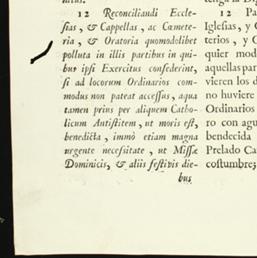 12 Reconciliandi Eccle-
sias, & Cappellas, ac Cœmete-
ria, & Oratoria quomodolibet
polluta in illis partibus in qui-
bus ipsi Exercitus consederint,
si ad locorum Ordinarios com-
modus non pateat accessus, aqua
tamen prius per aliquem Catho-
licum Antistitem, ut moris est,
benedicta, immò etiam magna
urgente necessitate, ut Missæ
Dominicis, & aliis festivis die-
bus
12 Pa
Iglesias, y C
terios, y O
quier mod
aquellas par
vieren los d
no huviere
Ordinarios
ro con agu
bendecida
Prelado Ca
costumbre;